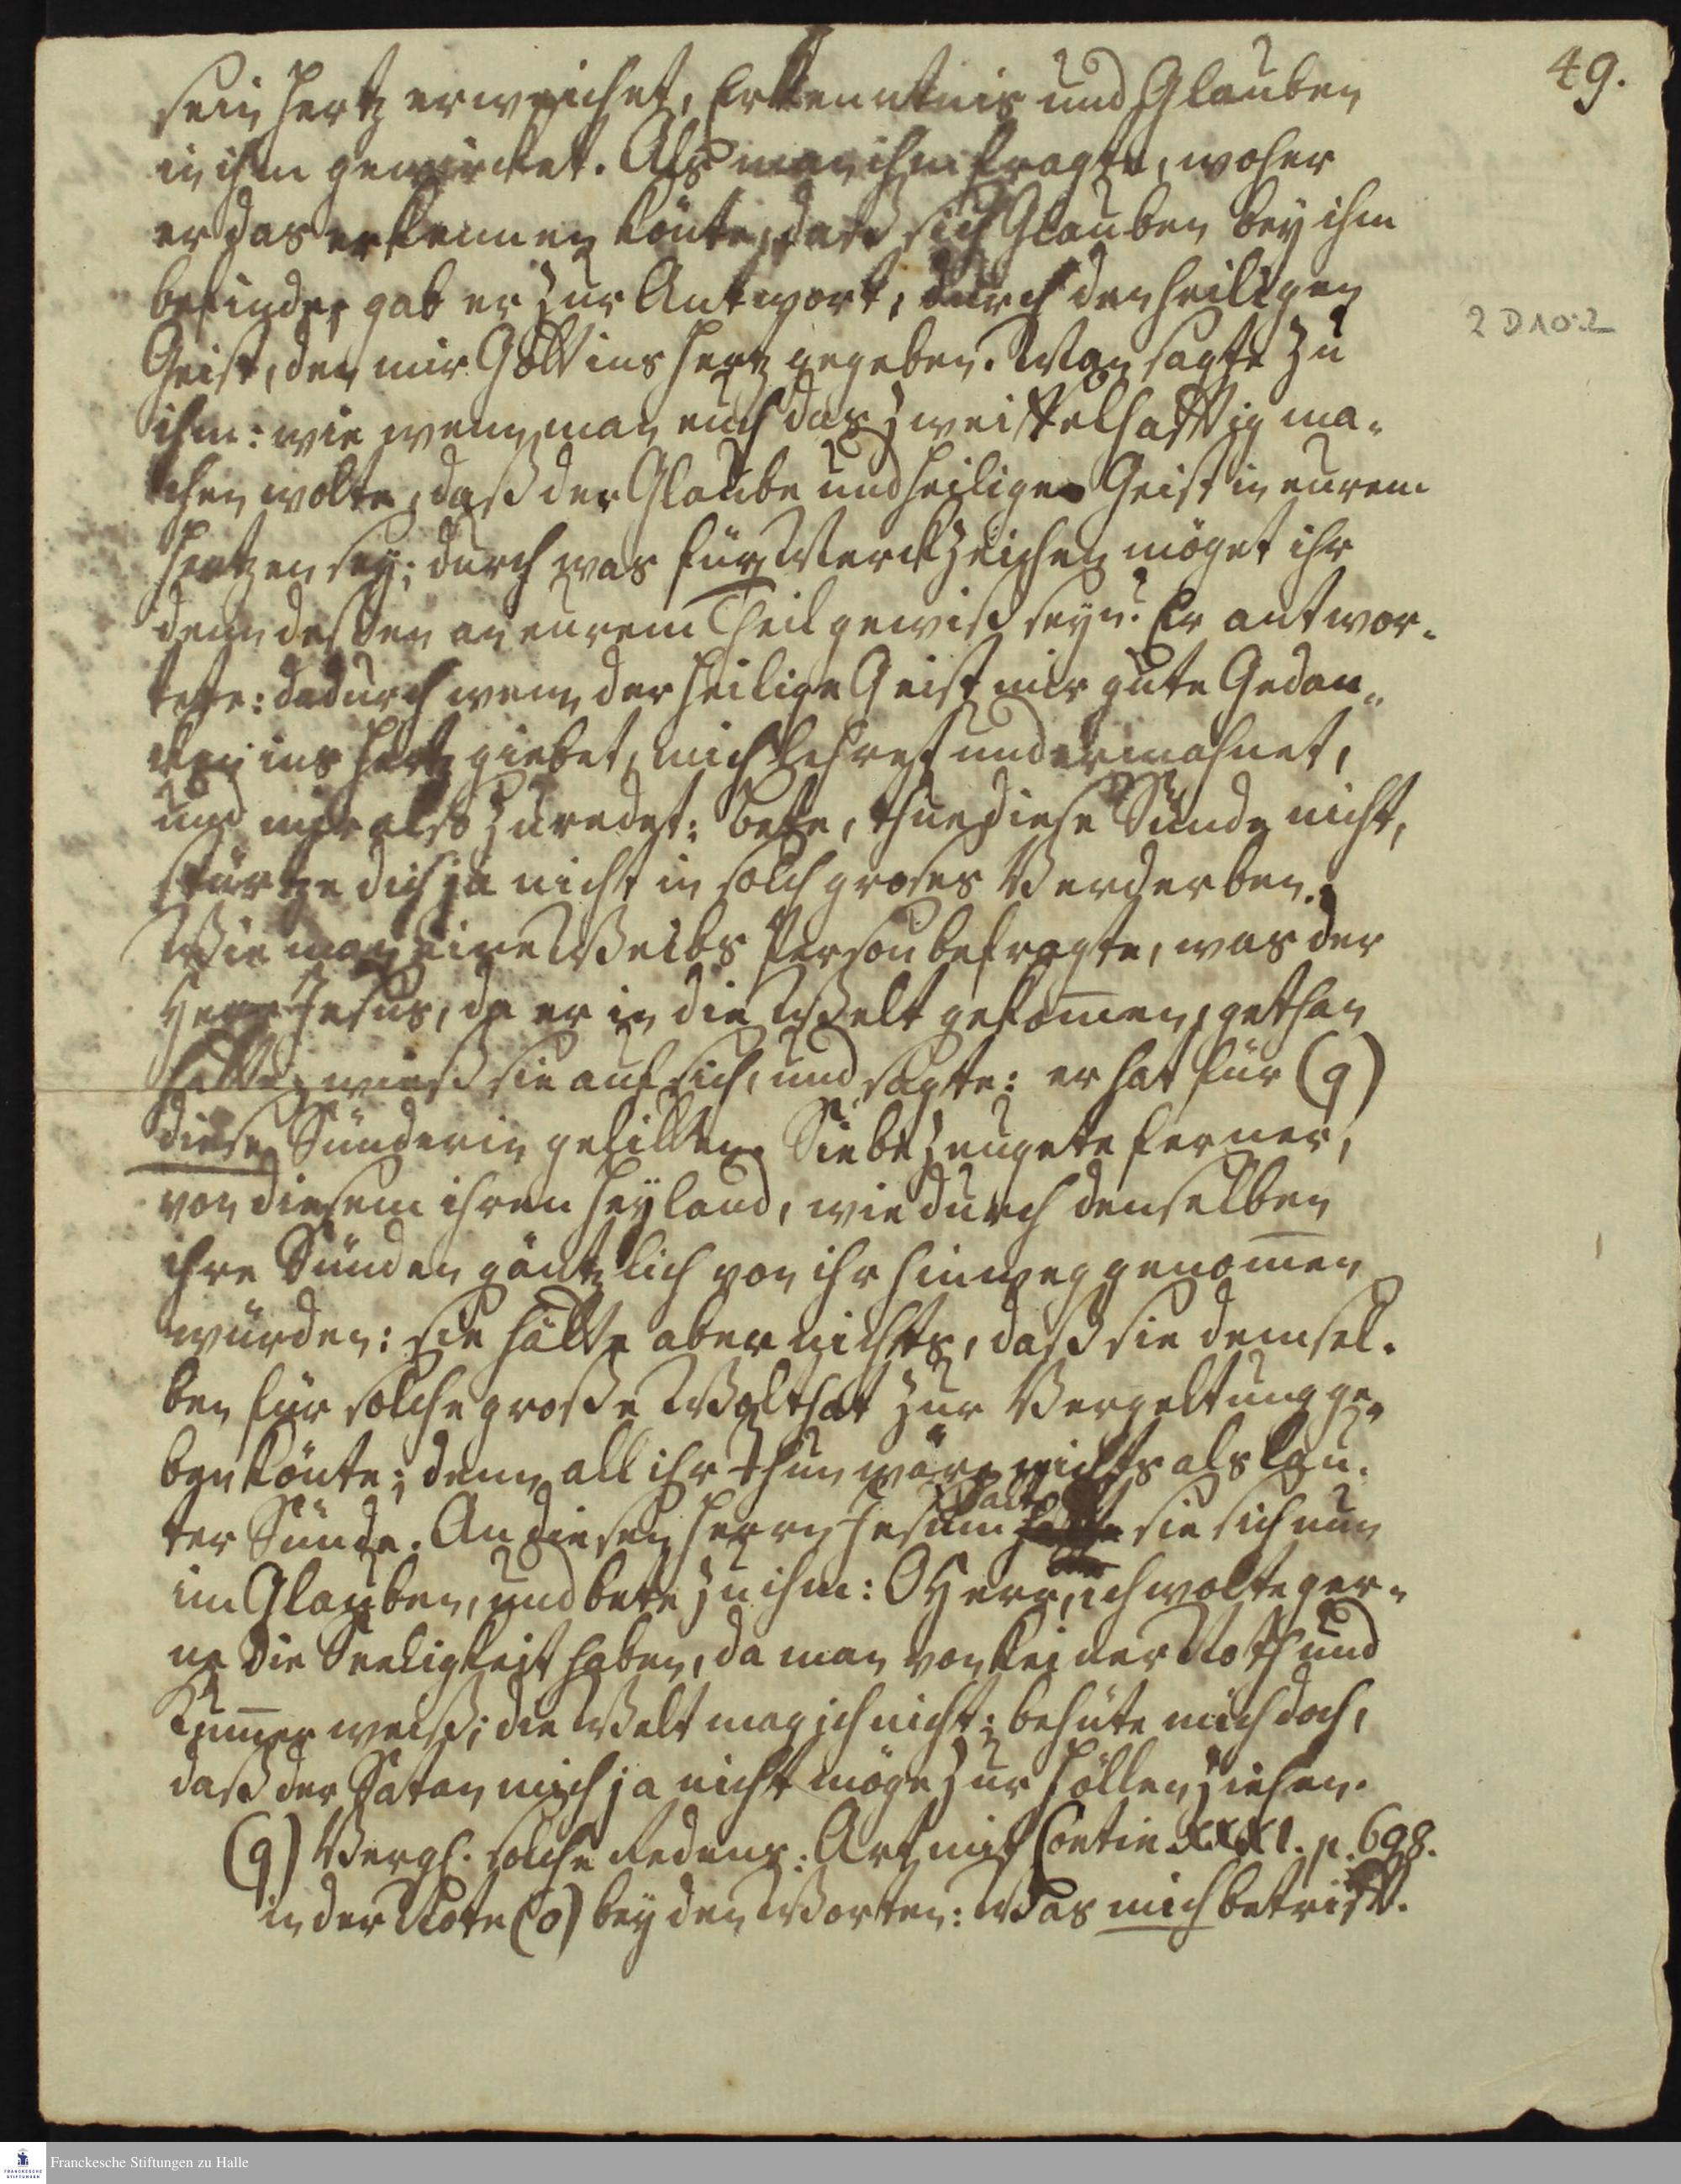 49.
sein Hertz erweichet, Erkenntnis und Glauben
in ihm gewircket. Als man ihn fragte, woher
er das erkennen könte, daß sich Glauben bey ihm
befinde, gab er zur Antwort, durch den heiligen
Geist, den mir Gott ins Hertz gegeben. Man sagte zu
2 D 10:2
ihm: wie wenn man euch das zweiffelhafftig ma-
chen wolte, daß der Glaube und heilige Geist in eurem
Hertzen sey; durch was für Merckzeichen möget ihr
denn deßen an eurem Theil gewiß seyn? Er antwor-
tete: dadurch wenn der heilige Geist mir gute Gedan-
cken ins Hertz giebet, mich lehret und ermahnet,
und mir also zuredet: bete, thue diese Sünde nicht,
stürtze dich ja nicht in solch groses Verderben.
Wie man eine Weibs Person befragte, was der
Herr Jesus, da er in die Welt gekom̄en, gethan
hätte, wieß sie auf sich, und sagte: er hat für (q)
diese Sünderin gelitten. Sie bezeugete ferner,
von diesem ihren Heyland, wie durch denselben
ihre Sünden gäntzlich von ihr hinweg genom̄en
würden: sie hätte aber nichts, daß sie demsel-
ben für solche große Wolthat zur Vergeltung ge-
ben könte; denn all ihr Thun wäre nichts als lau-
ter Sünde. An diesen Herrn Jesum halte sie sich nun
im Glauben, und bete zu ihm: O Herr, ich wolte ger-
ne die Seeligkeit haben, da man von keiner Noth und
Kum̄er weiß; die Welt mag ich nicht; behüte mich doch,
daß der Satan mich ja nicht möge zur Höllen ziehen.
(q) Vergl. solche Redens-Art mit Contin XXXI. p. 698.
in der Note (o) bey den Worten: Was mich betrifft.
Franckesche Stiftungen zu Halle
FRANCKESCHE STIFTUNGEN